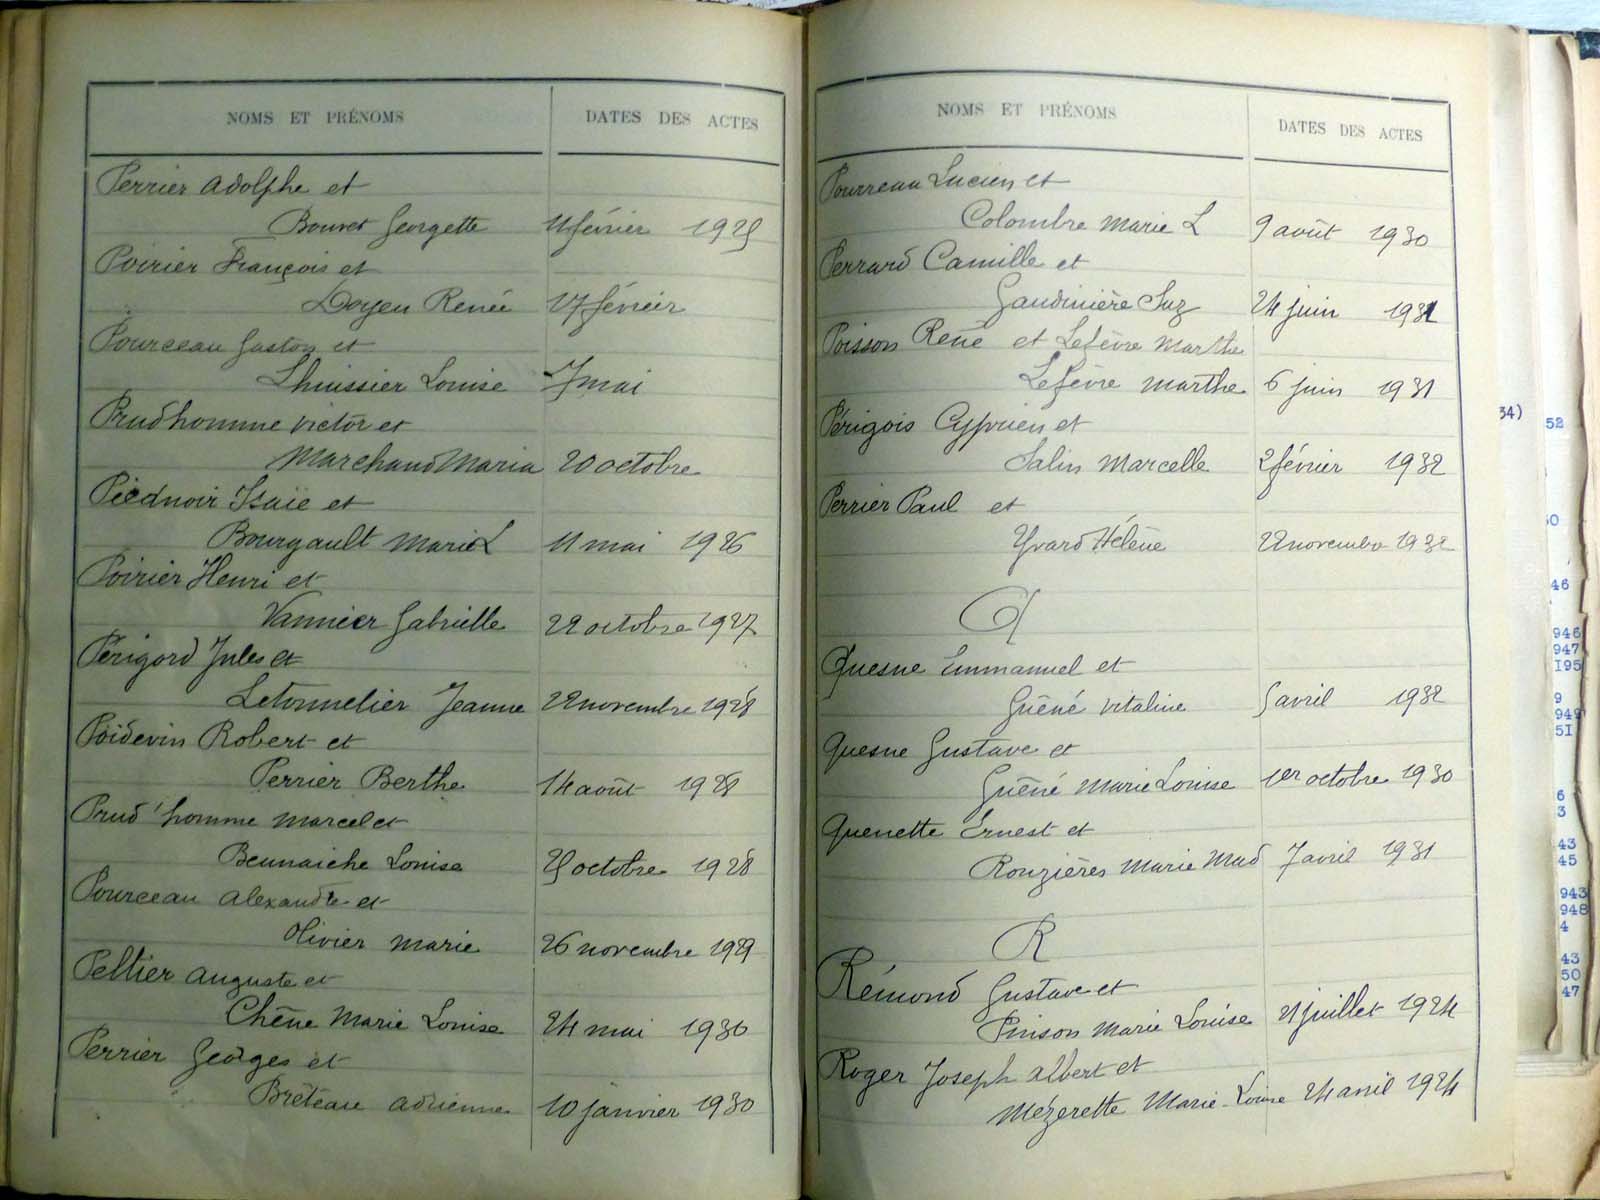 NOMS ET PRÉNOMS DATES DES ACTES
Perrier Adolphe et
Bouvet Georgette 11 février 1925
Poirier François et
Doyen Renée 17 février
Pourceau Gaston et
Lhuissier Louise 7 mai
Prudhomme Victor et
Marchand Maria 20 octobre
Piednoir Isaïe et
Bourgault Marie L 11 mai 1926
Poirier Henri et
Vannier Gabrielle 22 octobre 1927
Périgord Jules et
Letonnelier Jeanne 22 novembre 1928
Poidevin Robert et
Perrier Berthe 14 août 1928
Prud'homme Marcel et
Beunaiche Louise 25 octobre 1928
Pourceau Alexandre et
Olivier Marie 26 novembre 1929
Peltier Auguste et
Chêne Marie Louise 24 mai 1930
Perrier Georges et
Bréteau Adrienne 10 janvier 1930
NOMS ET PRÉNOMS DATES DES ACTES
Pourreau Lucien et
Colombre Marie L 9 août 1930
Perrard Camille et
Gaudinière Suz 24 juin 1931
Poisson René et Lefèvre Marthe
Lefèvre Marthe 6 juin 1931
Périgois Cyprien et
Salin Marcelle 2 février 1932
Perrier Paul et
Yvard Hélène 22 novembre 1932
Q
Quesne Emmanuel et
Guêné Vitaline 5 avril 1932
Quesne Gustave et
Guêné Marie Louise 1er octobre 1930
Quenette Ernest et
Rouzières Marie Mad 7 avril 1931
R
Rémond Gustave et
Pinson Marie Louise 21 juillet 1924
Roger Joseph Albert et
Mézerette Marie-Louise 24 avril 1924
34)
52
50
46
946
947
I95
9
949
5I
6
3
43
45
943
948
4
43
50
47